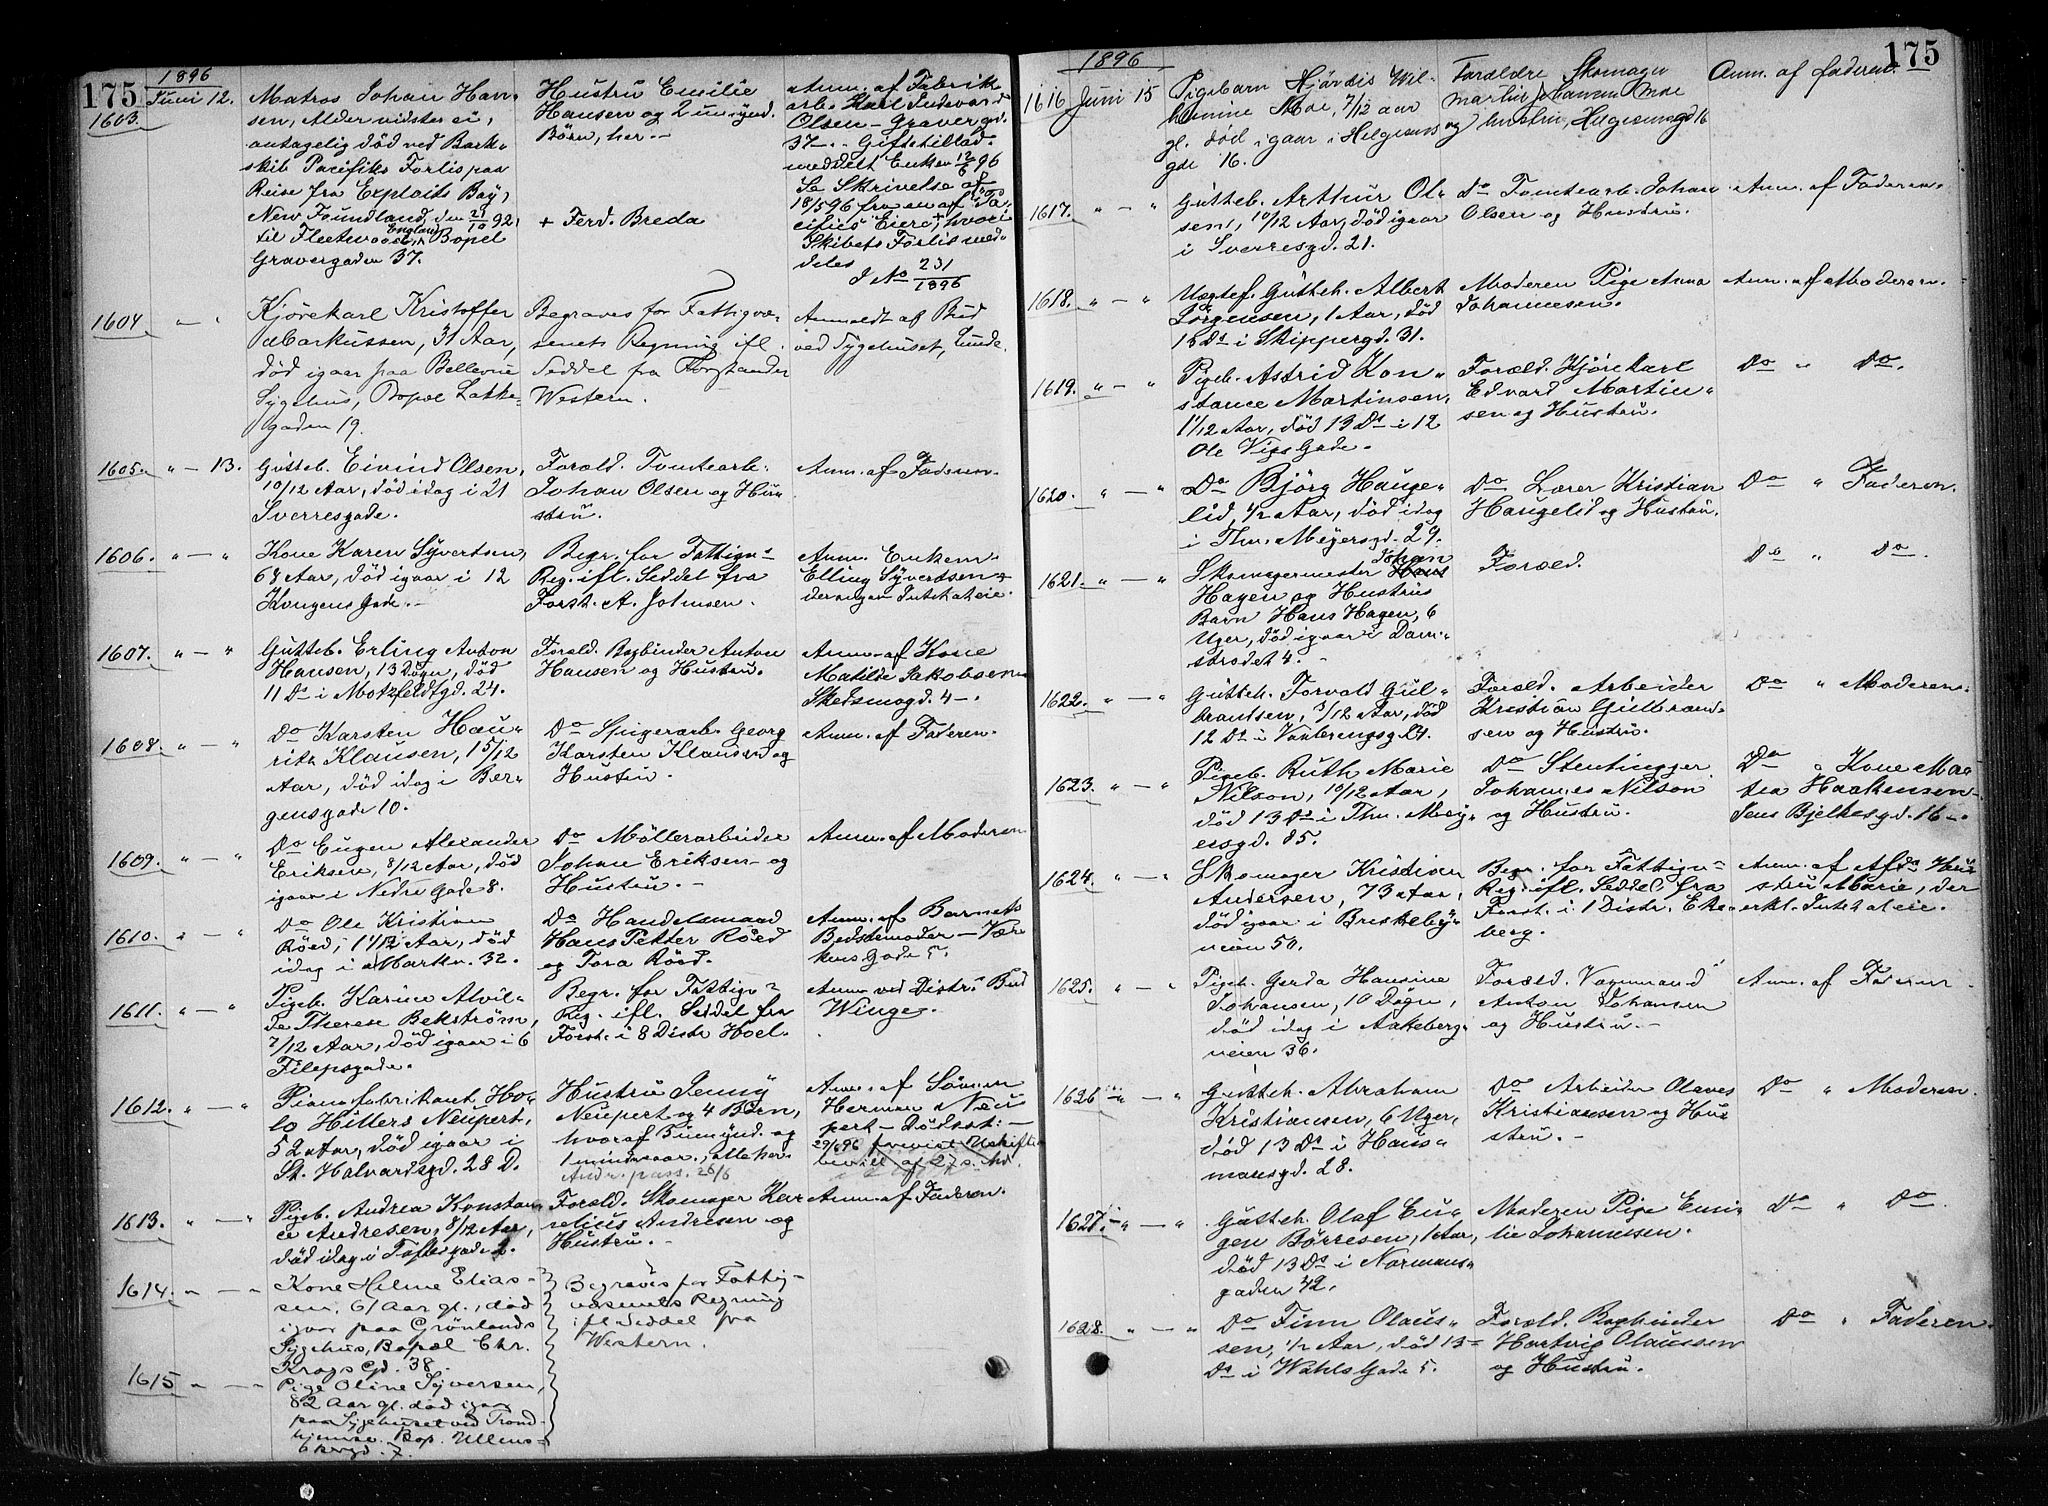 175
1896
1603. Juni 12.
Matros Johan Han-
sen, Alder vidstes ei,
antagelig død ved Bark-
skib Pacifiks Forlis paa
Reise fra Exploits Bay,
New Foundland, den 21/10 92,
til Fleetwood, England, Bopel
Gravergaden 37.
Hustru Emilie
Hansen og 2 umynd.
Børn, her.-
+ Ferd. Breda
Anm. af Fabrik
arb. Karl Ludvard
Olsen - Gravergd.
37-. Giftetillad.
meddelt Enken 12/6 96
Se Skrivelse af
18/5 96 fra en af "Pa
cifics" Eiere +, hvori
Skibets Forlis med-
deles
J No 231/1896
1604 " - "
Kjørekarl Kristoffer
Markussen, 31 Aar,
død igaar paa Bellevue
Sygehus, Bopæl Lakke-
gaden 19.
Begraves for Fattigvæ-
senets Regning ifl.
Seddel fra Forstander
Western.
Anmeldt af Bud
ved Sygehuset, Lunde.
1605. " - 13.
Gutteb. Eivind Olsen,
10/12 Aar, død idag i 21
Sverresgade.
Foræld. Tomtearb.
Johan Olsen og Hu-
stru.
Anm. af Faderen
1606. " - "
Kone Karen Syvertsen,
68 Aar, død igaar i 12
Kongens Gade.-
Begr. for Fattigv.s
Reg. ifl. Seddel fra
Forst. A. Johnsen.
Anm. Enkem.
Elling Syvertsen,
der angav Intet at eie.
1607. " - "
Gutteb. Erling Anton
Hansen, 13 Døgn, død
11 Ds i Motzfeldtgd. 24.
Foræld. Bogbinder Anton
Hansen og Hustru.
Anm. af Kone
Matilde Jakobsen
Skedsmogd. 4-.
1608. " - "
Do Karsten Hau-
ritz Klausen, 1 5/12
Aar, død idag i Ber-
gensgade 10.
Do Spigerarb. Georg
Karsten Klausen og
Hustru.
Anm. af Faderen.
1609. " - "
Do Eugen Alexander
Eriksen, 8/12 Aar, død
igaar i Nedre Gade 8.
Do Møllerarbeider
Johan Eriksen og
Hustru.-
Anm. af Moderen
1610. " - "
Do Ole Kristian
Røed, 1 4/12 Aar, død
idag i Markv. 32.
Do Handelsmand
Hans Petter Røed
og Tora Røed.
Anm. af Barnets
Bedstemoder - Vær
kens Gade 5.
1611. " - "
Pigeb. Karine Alvil-
de Therese Bekstrøm,
7/12 Aar, død igaar i 6
Filipsgade.
Begr. for Fattigv.s
Reg. ifl. Seddel fra
Forst. i 8 Distr. Hoel.
Anm ved Distr.s Bud
Winge.
1612. " - "
Pianofabrikant Ho-
lo Hillers Neupert,
52 Aar, død igaar i
St. Halvardsgd. 28 D.
Hustru Jenny
Neupert og 4 Børn,
hvoraf 3 umynd. og
1 mindreaar., alle her.
Andr. pass. 26/6
Anm. af Sønnen
Herman Neu
pert - Dødsat. -
29/6 96 forevist Uskifte
bevill. af 27 s. Md.
1613. " - "
Pigeb. Andrea Konstan-
ce Andresen, 8/12 Aar,
død idag i Toftesgade 2.
Foræld. Skomager Kar
relius Andresen og
Hustru.-
Anm. af Faderen.
1614. " - "
Kone Helene Elias-
sen, 61 Aar gl., død
igaar paa Grønlands
Sygehus, Bopæl Chr.
Krogs Gd. 38.
Begraves for Fattig-
væsenets Regning
ifl Seddel fra
Western.
1615 " - "
Pige Oline Syversen,
82 Aar gl. død igaar
paa Sygehuset ved Trond-
hjemsv. Bop. Ullens-
akergd. 7.
175
1896
1616 Juni 15
Pigebarn Hjørdis Wil-
helmine Moe, 7/12 aar
gl. død igaar i Helgesens
gde 16.
Forældre Skomager
Martin Johansen Moe
og hustru, Helgesensgd 16
Anm. af Faderen.
1617. " - "
Gutteb. Arthur Ol-
sen, 10/12 Aar, død igaar
i Sverresgd. 21.
do Tomtearb. Johan
Olsen og Hustru.
Anm. af Faderen.
1618. " - "
Uegtef. Gutteb. Albert
Jørgensen, 1 Aar, død
15 Ds i Skippergd. 31.
Moderen Pige Anna
Johannesen.
Anm. af Moderen.
1619. " - "
Pigeb. Astrid Kon-
stance Martinsen,
11/12 Aar, død 13 Ds i 12
Ole Vigs Gade.
Foræld. Kjørekarl
Edvard Martin-
sen og Hustru.
Do " Do.
1620. " - "
Do Bjørg Hauge-
lid, 1/2 Aar, død idag
i Thv. Meyersgd. 29.
Do Lærer Kristian
Haugelid og Hustru.
Do " Faderen.
1621. " - "
Skomagermester Johan
Hagen og Hustrus
Barn Hans Hagen, 6
Uger, død igaar i Dam-
strædet 4.-
Foræld.
Do " Do.
1622. " - "
Gutteb. Torvald Gul-
brandsen, 3/12 Aar, død
12 Ds i Vaalerengg. 24.
Foræld. Arbeider
Kristian Gulbrand-
sen og Hustru.
Do " Moderen.
1623. " - "
Pigeb. Ruth Marie
Nilson, 10/12 Aar,
død 13 Ds i Thv. Mey-
ersgd. 85.
Do Stenhugger
Johannes Nilson
og Hustru.
Do " Kone Ma-
tea Haakensen
Jens Bjelkesgd. 16-.
1624. " - "
Skomager Kristian
Andersen, 73 Aar,
død igaar i Briskeby-
veien 50.
Begr. for Fattigv.s
Reg. ifl. Seddel fra
Forst. i 1 Distr. Eke-
berg.
Anm. af Afdøs Hu-
stru Marie, der
erkl. Intet at eie.
1625. " - "
Pigeb. Gerda Hansine
Johansen, 10 Døgn,
død idag i Aakeberg-
veien 36.
Foræld. Vognmand
Anton Johansen
og Hustru.-
Anm. af Faderen
1626 " - "
Gutteb. Abraham
Kristiansen, 6 Uger,
død 13 Ds i Haus-
mansgd. 28.
Do Arbeider Olaves
Kristiansen og Hu-
stru.-
Do " Moderen.
1627. " - "
Gutteb. Olaf Eu-
gen Børresen, 1 Aar,
død 13 Ds i Normans-
gaden 42.
Moderen Pige Emi-
lie Johannesen.
Do " Do.
1628. " - "
Do Finn Olaus-
sen, 1/2 Aar, død 13-
Ds i Wahls Gade 5.
Foræld. Bogbinder
Hartvig Olaussen
og Hustru.
Do " Faderen.